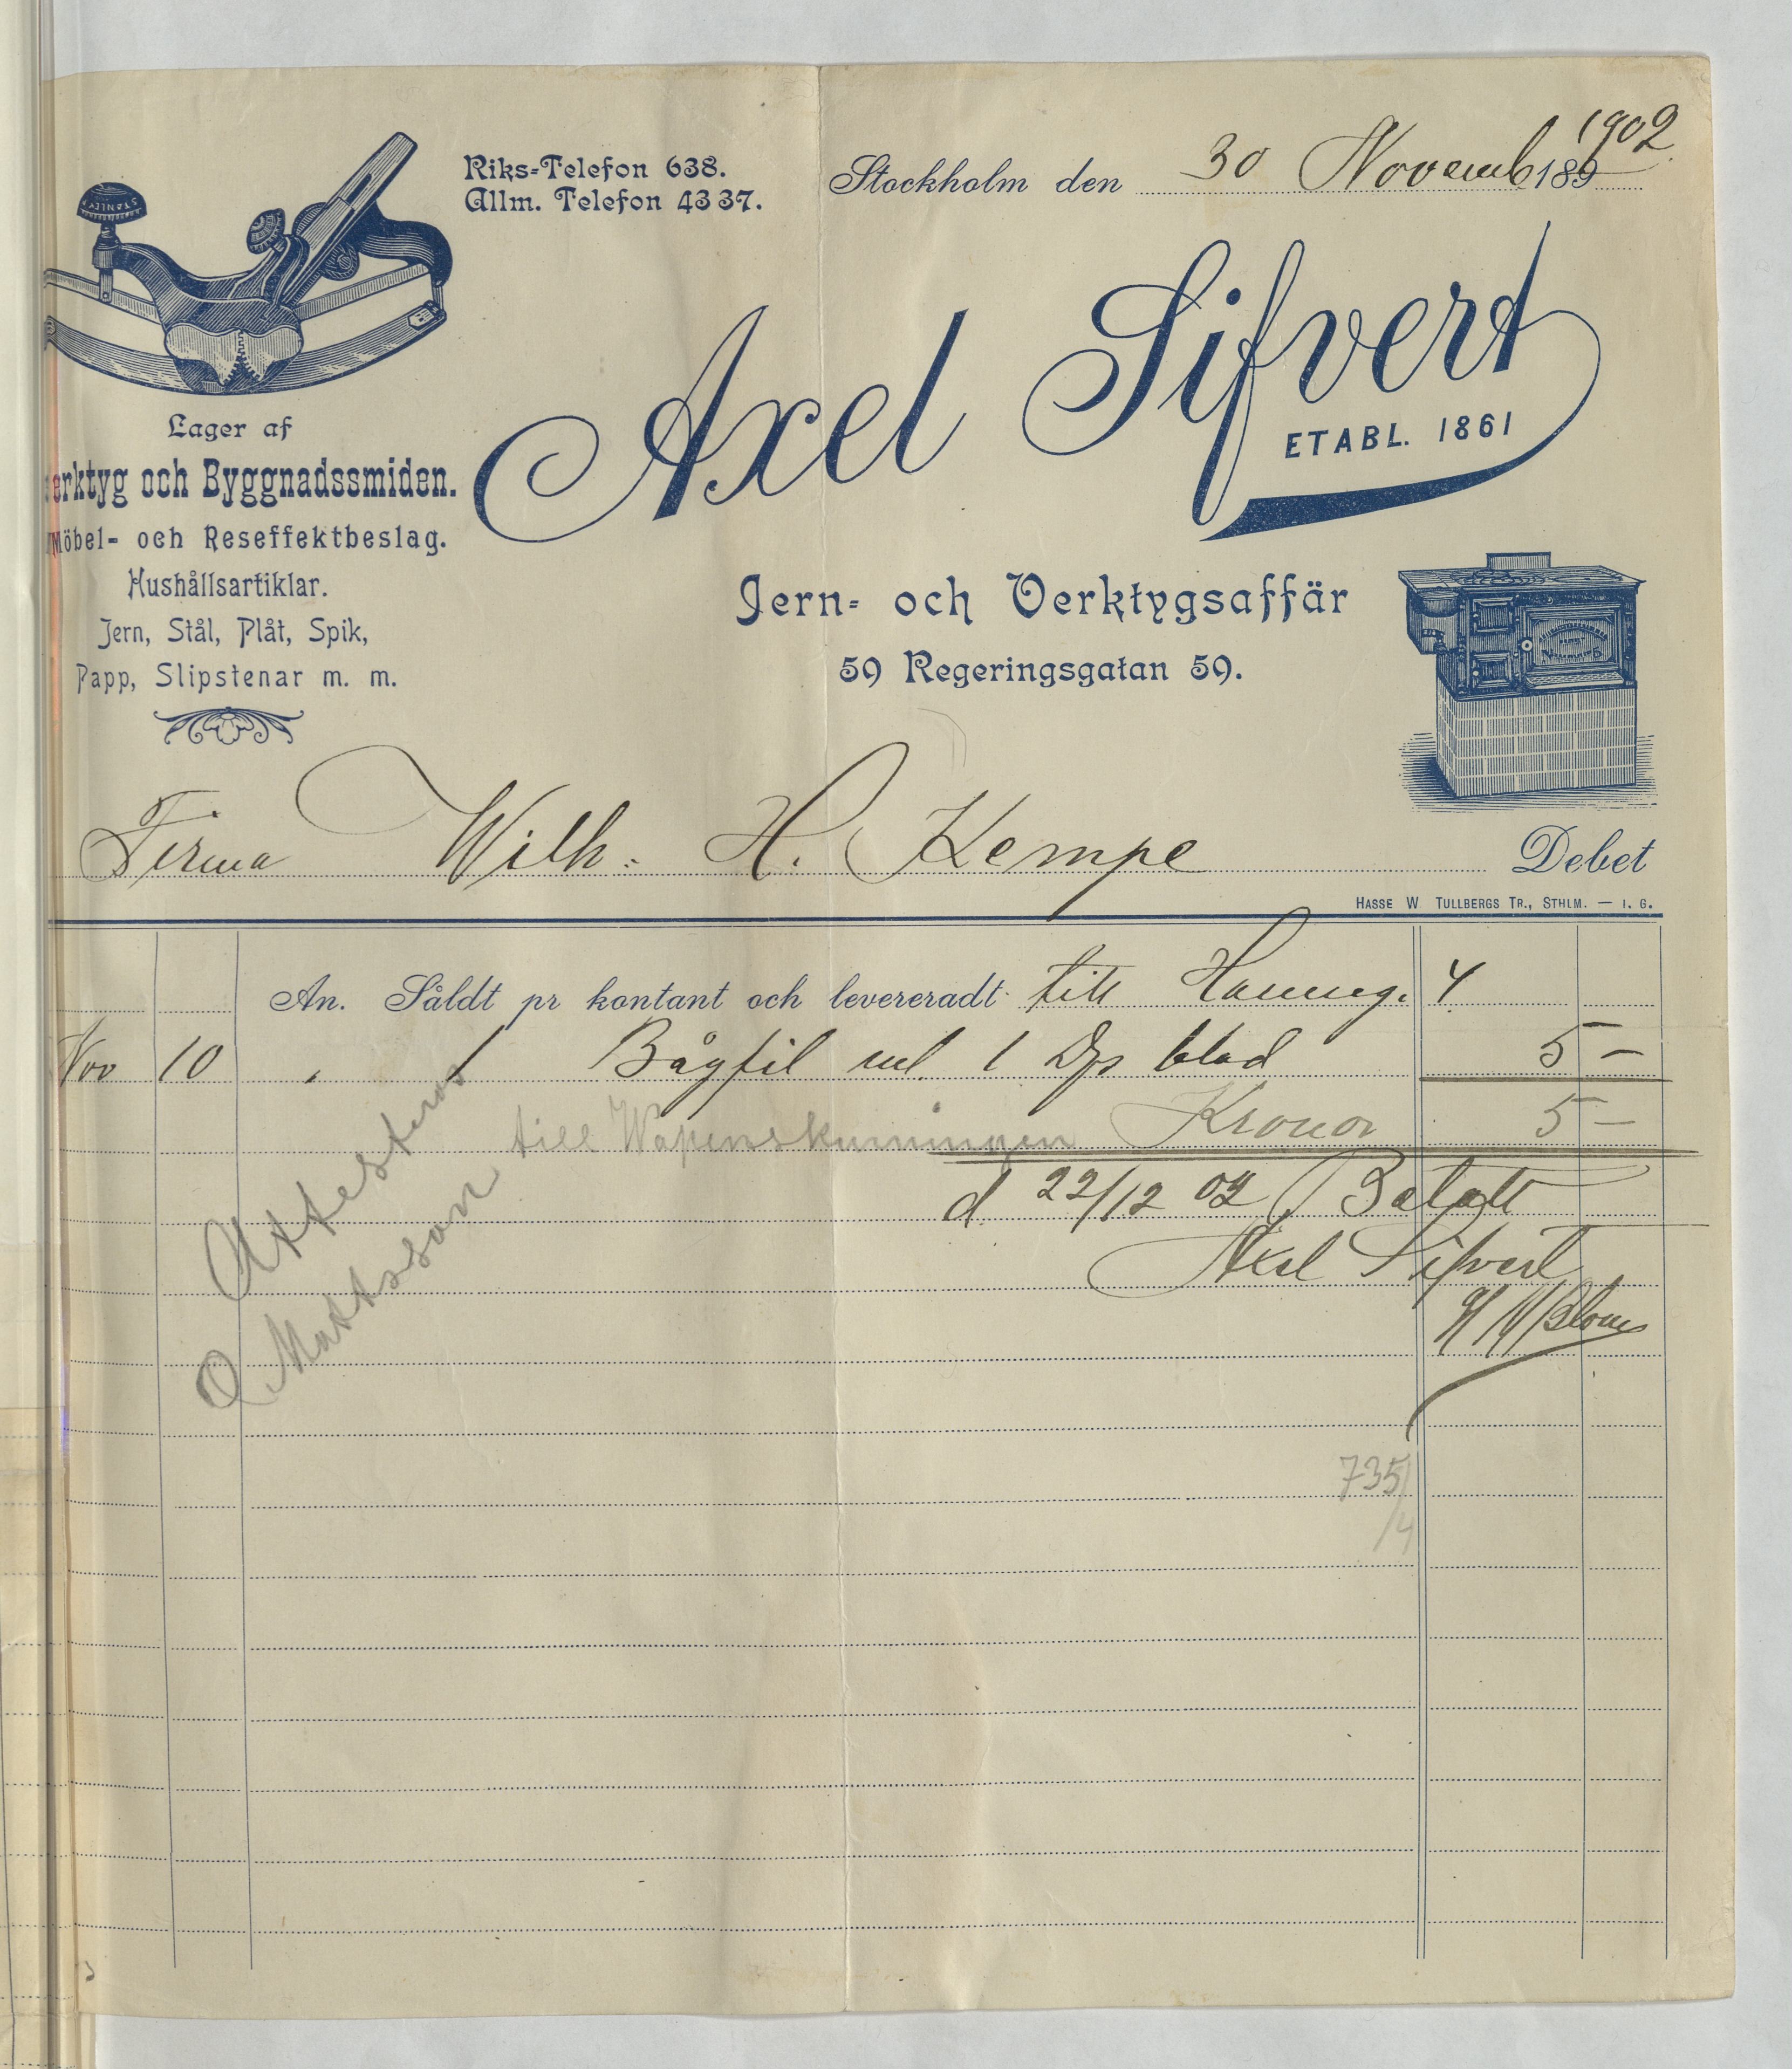 Riks-Telefon 638.
Allm. Telefon 4337.
Stockholm den 30 Novemb 189 1902
STANLEY
Axel Sifvert
ETABL. 1861
Lager af
erktyg och Byggnadssmiden.
Möbel- och Reseffektbeslag.
Hushållsartiklar.
Jern, Stål, Plåt, Spik,
Papp, Slipstenar m. m.
Jern- och Verktygsaffär
59 Regeringsgatan 59.
Firma Wilh. H. Kempe Debet
HASSE W. TULLBERGS TR., STHLM. — I. G.
An. Såldt pr kontant och levereradt till Hamng. 4
Nov 10 " 1 Bågfil ml. 1 Dz blad 5 —
till Wapenskumningen Kronor 5 —
d. 22/12 02 Betalt
Axel Sifvert
g/ Blom
Attesteras
O Mattsson
735/4